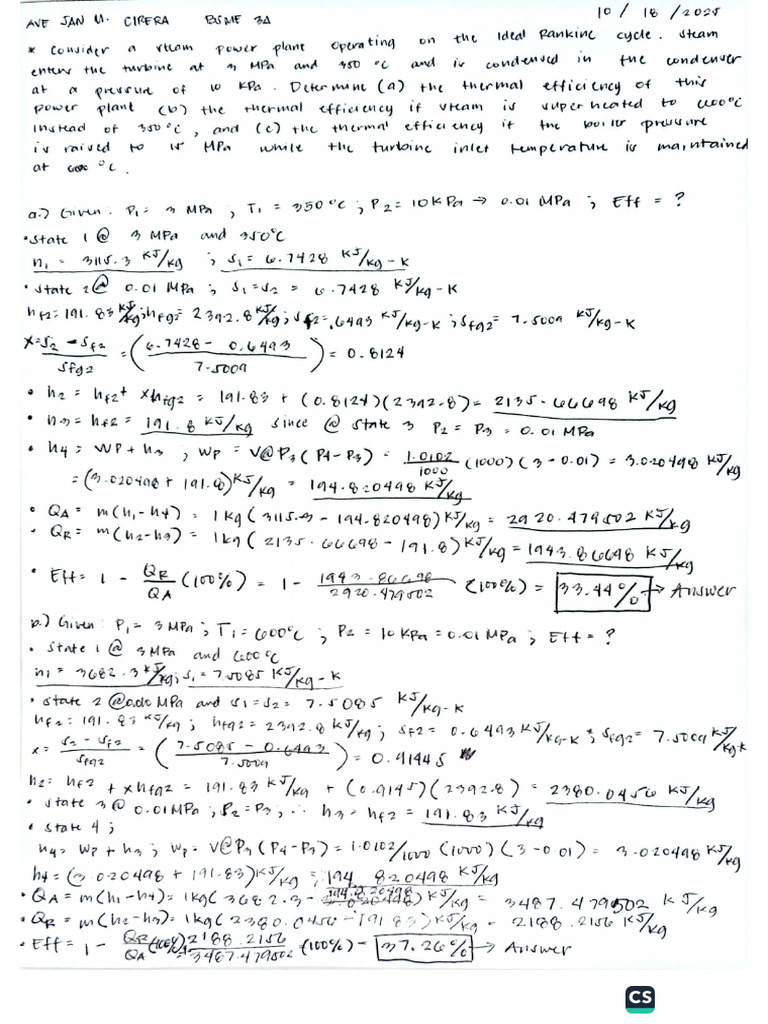 AVE JAN M. CIRERA BSME 3A 10 / 18 / 2025
* Consider a steam power plant operating on the Ideal Rankine cycle. Steam
enters the turbine at 3 MPa and 350 °C and is condensed in the condenser
at a pressure of 10 KPa. Determine (a) the thermal efficiency of this
power plant (b) the thermal efficiency if steam is superheated to 600°C
instead of 350°C, and (c) the thermal efficiency if the boiler pressure
is raised to 15 MPa while the turbine inlet temperature is maintained
at 600 °C.
a.) Given: P1 = 3 MPa ; T1 = 350°C ; P2 = 10KPa → 0.01 MPa ; Eff = ?
• State 1 @ 3 MPa and 350°C
h1 = 3115.3 KJ/kg ; s1 = 6.7428 KJ/kg-K
• State 2 @ 0.01 MPa ; s1 = s2 = 6.7428 KJ/kg-K
hf2 = 191.83 KJ/kg ; hfg2 = 2392.8 KJ/kg ; sf2 = .6493 KJ/kg-K ; sfg2 = 7.5009 KJ/kg-K
x = s2 - sf2 / sfg2 = (6.7428 - 0.6493 / 7.5009) = 0.8124
• h2 = hf2 + xhfg2 = 191.83 + (0.8124)(2392.8) = 2135.66698 KJ/kg
• h3 = hf2 = 191.8 KJ/kg since @ state 3 P2 = P3 = 0.01 MPa
• h4 = WP + h3 , wp = V@P3 (P4 - P3) = 1.0102/1000 (1000)(3 - 0.01) = 3.020498 KJ/kg
= (3.020498 + 191.8) KJ/kg = 194.820498 KJ/kg
• QA = m(h1 - h4) = 1kg (3115.3 - 194.820498) KJ/kg = 2920.479502 KJ/kg
• QR = m(h2 - h3) = 1kg (2135.66698 - 191.8) KJ/kg = 1943.86698 KJ/kg
• Eff = 1 - QR/QA (100%) = 1 - 1943.86698/2920.479502 (100%) = 33.44% → Answer
b.) Given: P1 = 3 MPa ; T1 = 600°C ; P2 = 10 KPa = 0.01 MPa ; Eff = ?
• State 1 @ 3 MPa and 600°C
h1 = 3682.3 KJ/kg ; s1 = 7.5085 KJ/kg-K
• State 2 @ 0.010 MPa and s1 = s2 = 7.5085 KJ/kg-K
hf2 = 191.83 KJ/kg ; hfg2 = 2392.8 KJ/kg ; sf2 = 0.6493 KJ/kg-K ; sfg2 = 7.5009 KJ/kg-K
x = s2 - sf2 / sfg2 = (7.5085 - 0.6493 / 7.5009) = 0.91445
h2 = hf2 + xhfg2 = 191.83 KJ/kg + (0.9145)(2392.8) = 2380.0456 KJ/kg
• State 3 @ 0.01MPa ; P2 = P3, ∴ h3 = hf2 = 191.83 KJ/kg
• State 4 ;
h4 = WP + h3 ; wp = V@P3 (P4 - P3) = 1.0102/1000 (1000)(3 - 0.01) = 3.020498 KJ/kg
h4 = (3.020498 + 191.83) KJ/kg = 194.820498 KJ/kg
• QA = m(h1 - h4) = 1kg (3682.3 - 194.820498) KJ/kg = 3487.479502 KJ/kg
• QR = m(h2 - h3) = 1kg (2380.0456 - 191.83) KJ/kg = 2188.2156 KJ/kg
• Eff = 1 - QR/QA (100%) 2188.2156/3487.479502 (100%) = 37.26% → Answer
CS